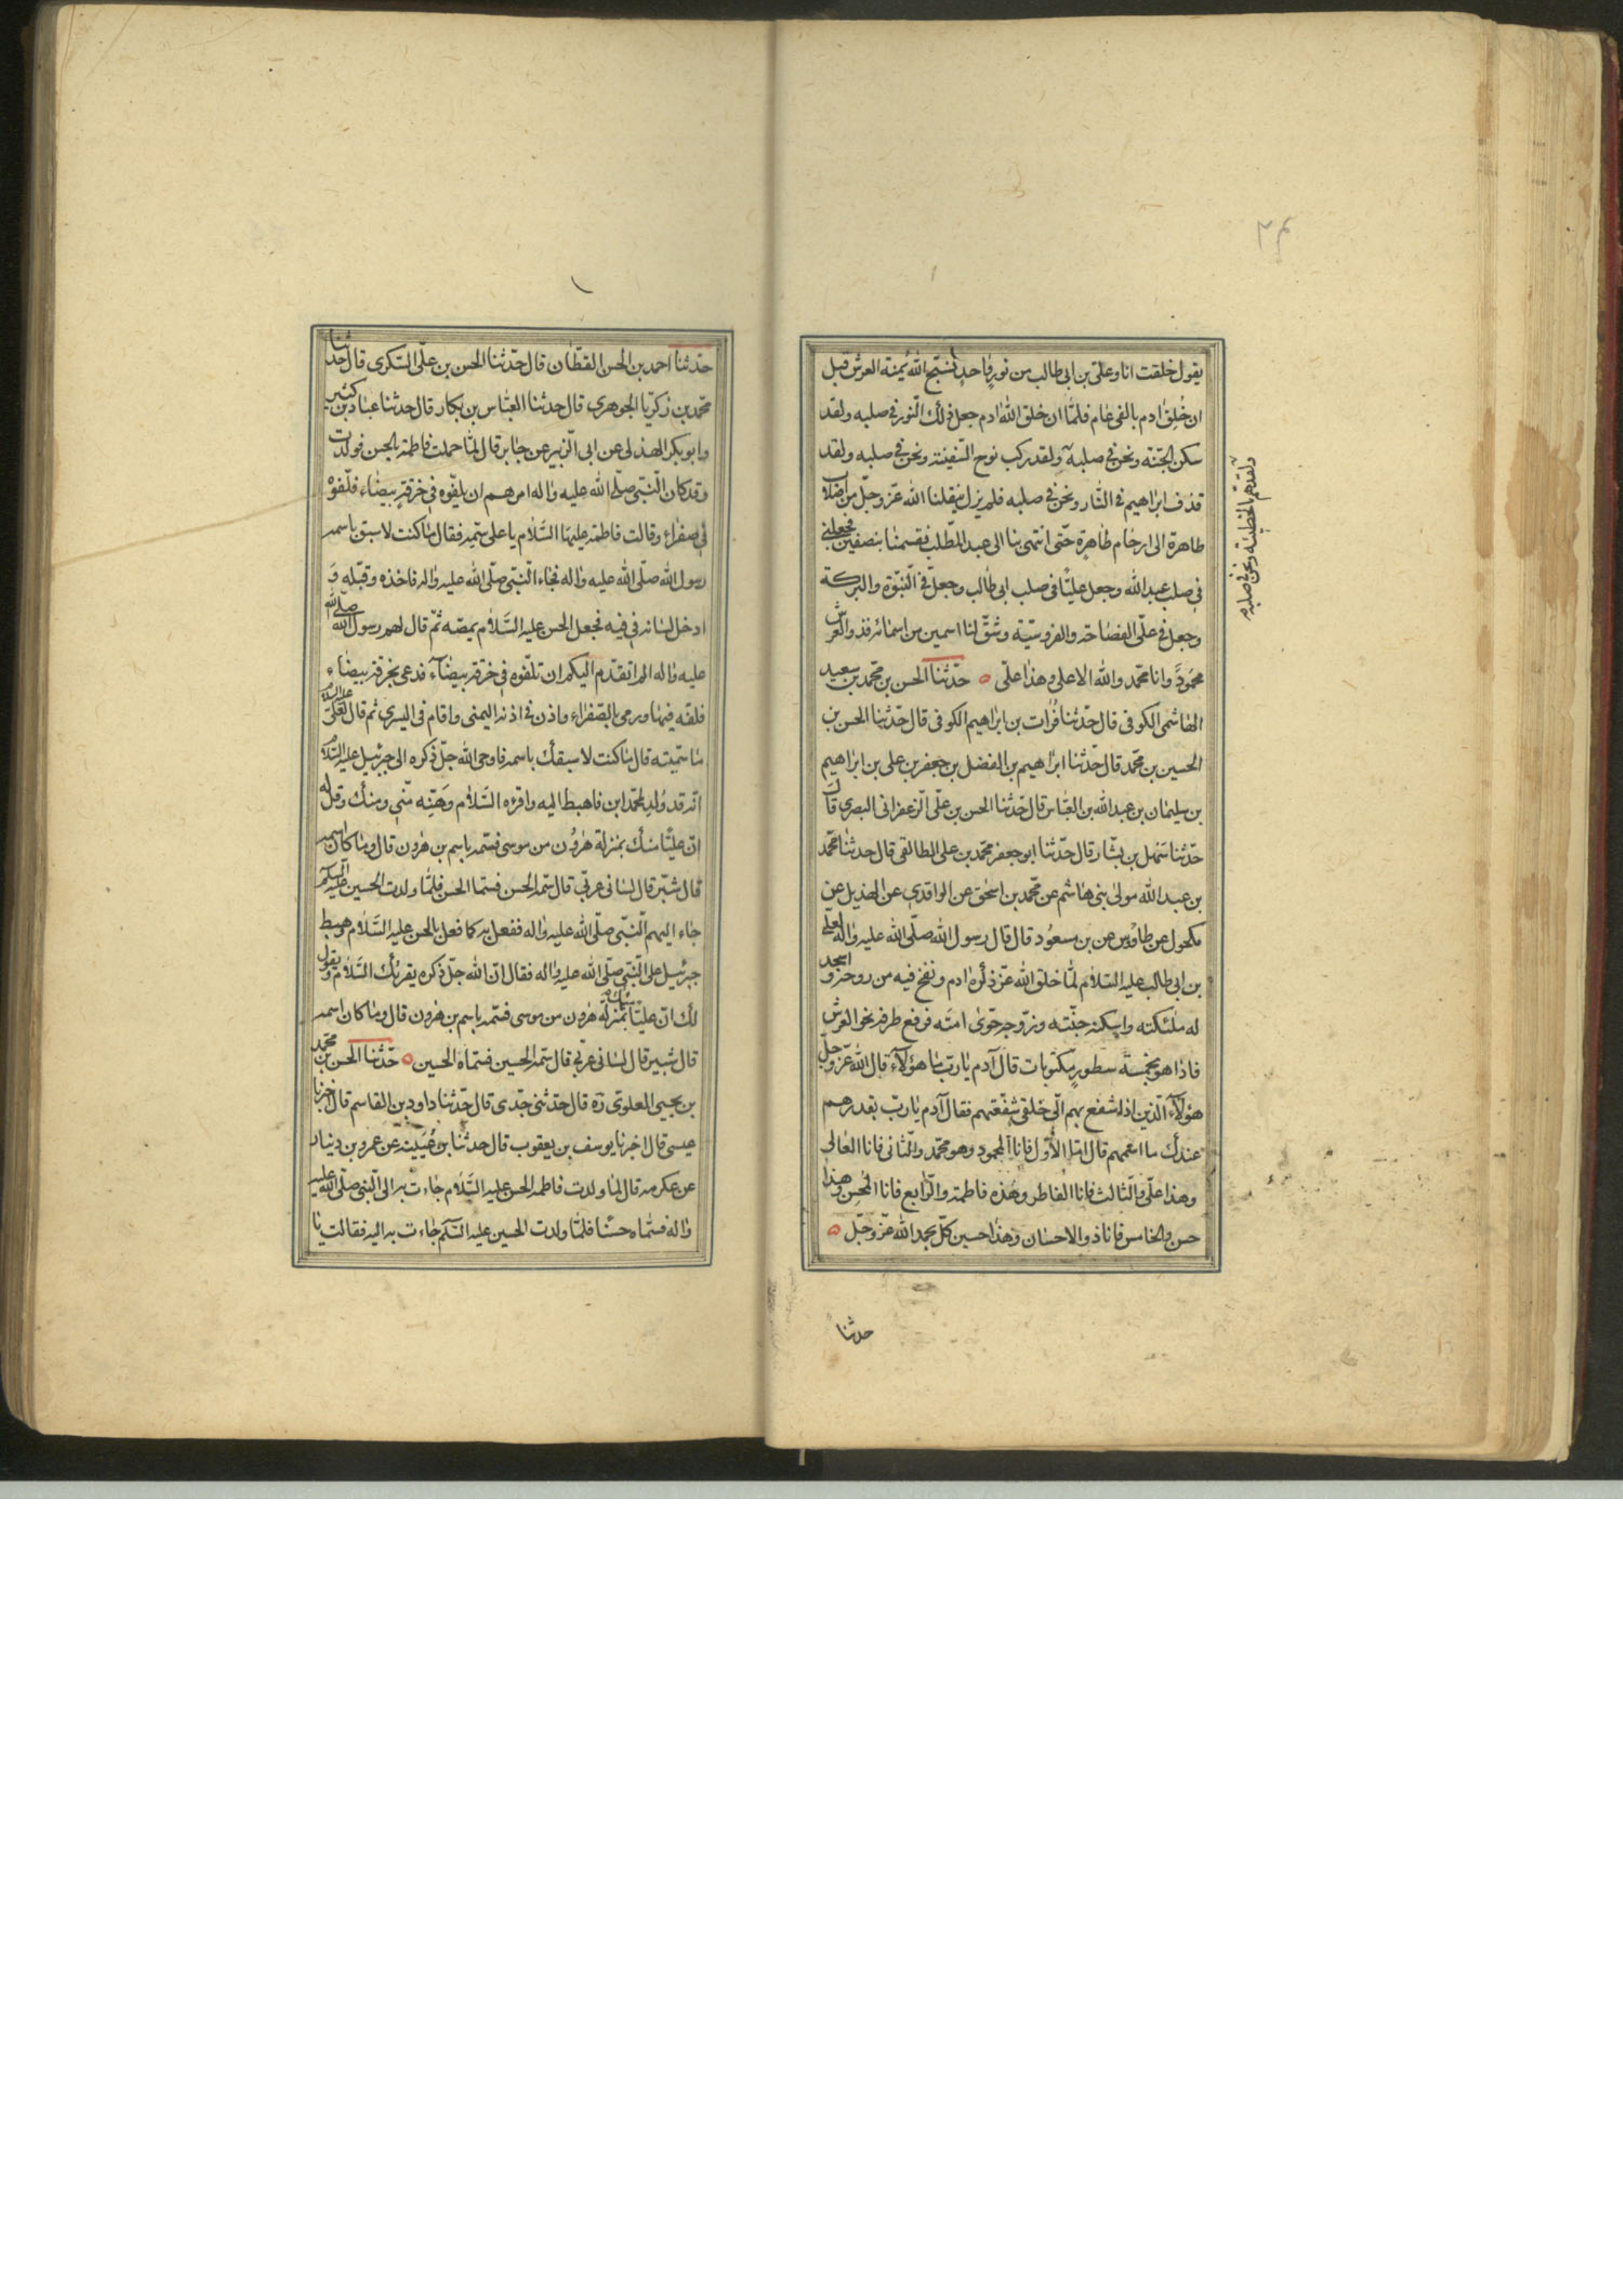 يقول خلقت انا وعلي بن ابي طالب من نور واحد نسبح الله يمنة العرش قبل
ان خلق ادم بالفي عام فلما ان خلق الله ادم جعل ذلك النور في صلبه ولقد
سكن الجنة ونحن في صلبه ولقد ركب نوح السفينة ونحن في صلبه ولقد
قذف ابراهيم في النار ونحن في صلبه فلم يزل ينقلنا الله عز وجل من اصلاب
طاهرة الى ارحام طاهرة حتى انتهى بنا الى عبد المطلب فقسمنا بنصفين فجعلني
في صلب عبد الله وجعل عليا في صلب ابي طالب وجعل في النبوة والبركة
وجعل في علي الفصاحة والفروسية وشق لنا اسمين من اسمائه فذو العرش
محمود وانا محمد والله الاعلى وهذا علي ه حدثنا الحسن بن محمد بن سعيد
الهاشمي الكوفي قال حدثنا فرات بن ابراهيم الكوفي قال حدثنا الحسن بن
الحسين بن محمد قال حدثنا ابراهيم بن الفضل بن جعفر بن علي بن ابراهيم
بن سليمان بن عبد الله بن العباس قال حدثنا الحسن بن علي الزعفراني البصري قال
حدثنا سهل بن بشار قال حدثنا ابو جعفر محمد بن علي الطالقي قال حدثنا محمد
بن عبد الله مولى بني هاشم عن محمد بن اسحق عن الواقدي عن الهذيل عن
مكحول عن طاوس عن بن مسعود قال قال رسول الله صلى الله عليه واله لعلي
بن ابي طالب عليه السلام لما خلق الله عز ذكره ادم ونفخ فيه من روحه و اسجد
له ملئكته واسكنه جنته وزوجه حوى امته فرفع طرفه نحو العرش
فاذا هو بخمسة سطور مكتوبات قال آدم يا رب ما هؤلآء قال الله عز وجل
هؤلآء الذين اذا شفع بهم الي خلقي شفعتهم فقال آدم يا رب بقدرهم
عندك ما اسمهم قال اما الاول فانا المحمود وهو محمد والثاني فانا العالي
وهذا علي والثالث فانا الفاطر وهذه فاطمة والرابع فانا المحسن وهذا
حسن والخامس فانا ذو الاحسان وهذا حسين كل يحمد الله عز وجل ه
حدثنا
ولقد هم بالخطيئة ونحن في صلبه
حدثنا احمد بن الحسن القطان قال حدثنا الحسن بن علي السكري قال حدثنا
محمد بن زكريا الجوهري قال حدثنا العباس بن بكار قال حدثنا عباد بن كثير
وابو بكر الهذلي عن ابي الزبير عن جابر قال لما حملت فاطمة بالحسن فولدت
وقد كان النبي صلى الله عليه واله امرهم ان يلفوه في خرقة بيضاء فلفوه
في صفراء وقالت فاطمة عليها السلام يا علي سمه فقال ما كنت لاسبق باسمه
رسول الله صلى الله عليه واله فجاء النبي صلى الله عليه واله فاخذه وقبله و
ادخل لسانه في فيه فجعل الحسن عليه السلام يمصه ثم قال لهم رسول الله صلى الله
عليه واله الم اتقدم اليكم ان تلفوه في خرقة بيضاء فدعى بخرقة بيضاء
فلفه فيها ورمى بالصفراء واذن في اذنه اليمنى واقام في اليسرى ثم قال لعلي عليه السلام
ما سميته قال ما كنت لاسبقك باسمه فاوحى الله جل ذكره الى جبرئيل عليه السلام
انه قد ولد لمحمد ابن فاهبط اليه واقرءه السلام وهنه مني ومنك وقل له
ان عليا منك بمنزلة هرون من موسى فسمه باسم بن هرون قال وما كان اسمه
قال شبر قال لساني عربي قال سمه الحسن فسماه الحسن فلما ولدت الحسين عليه السلم
جاء اليهم النبي صلى الله عليه واله ففعل به كما فعل بالحسن عليه السلام وهبط
جبرئيل على النبي صلى الله عليه واله فقال ان الله جل ذكره يقرئك السلام ويقول
لك ان عليا منك بمنزلة هرون من موسى فسمه باسم بن هرون قال وما كان اسمه
قال شبير قال لساني عربي قال سمه الحسين فسماه الحسين ه حدثنا الحسن بن محمد
بن يحيى العلوي ره قال حدثني جدي قال حدثنا داود بن القاسم قال اخبرنا
عيسى قال اخبرنا يوسف بن يعقوب قال حدثنا بن عيينة عن عمرو بن دينار
عن عكرمه قال لما ولدت فاطمة الحسن عليه السلام جاءت به الى النبي صلى الله عليه
واله فسماه حسنا فلما ولدت الحسين عليه السلم جاءت به اليه فقالت يا